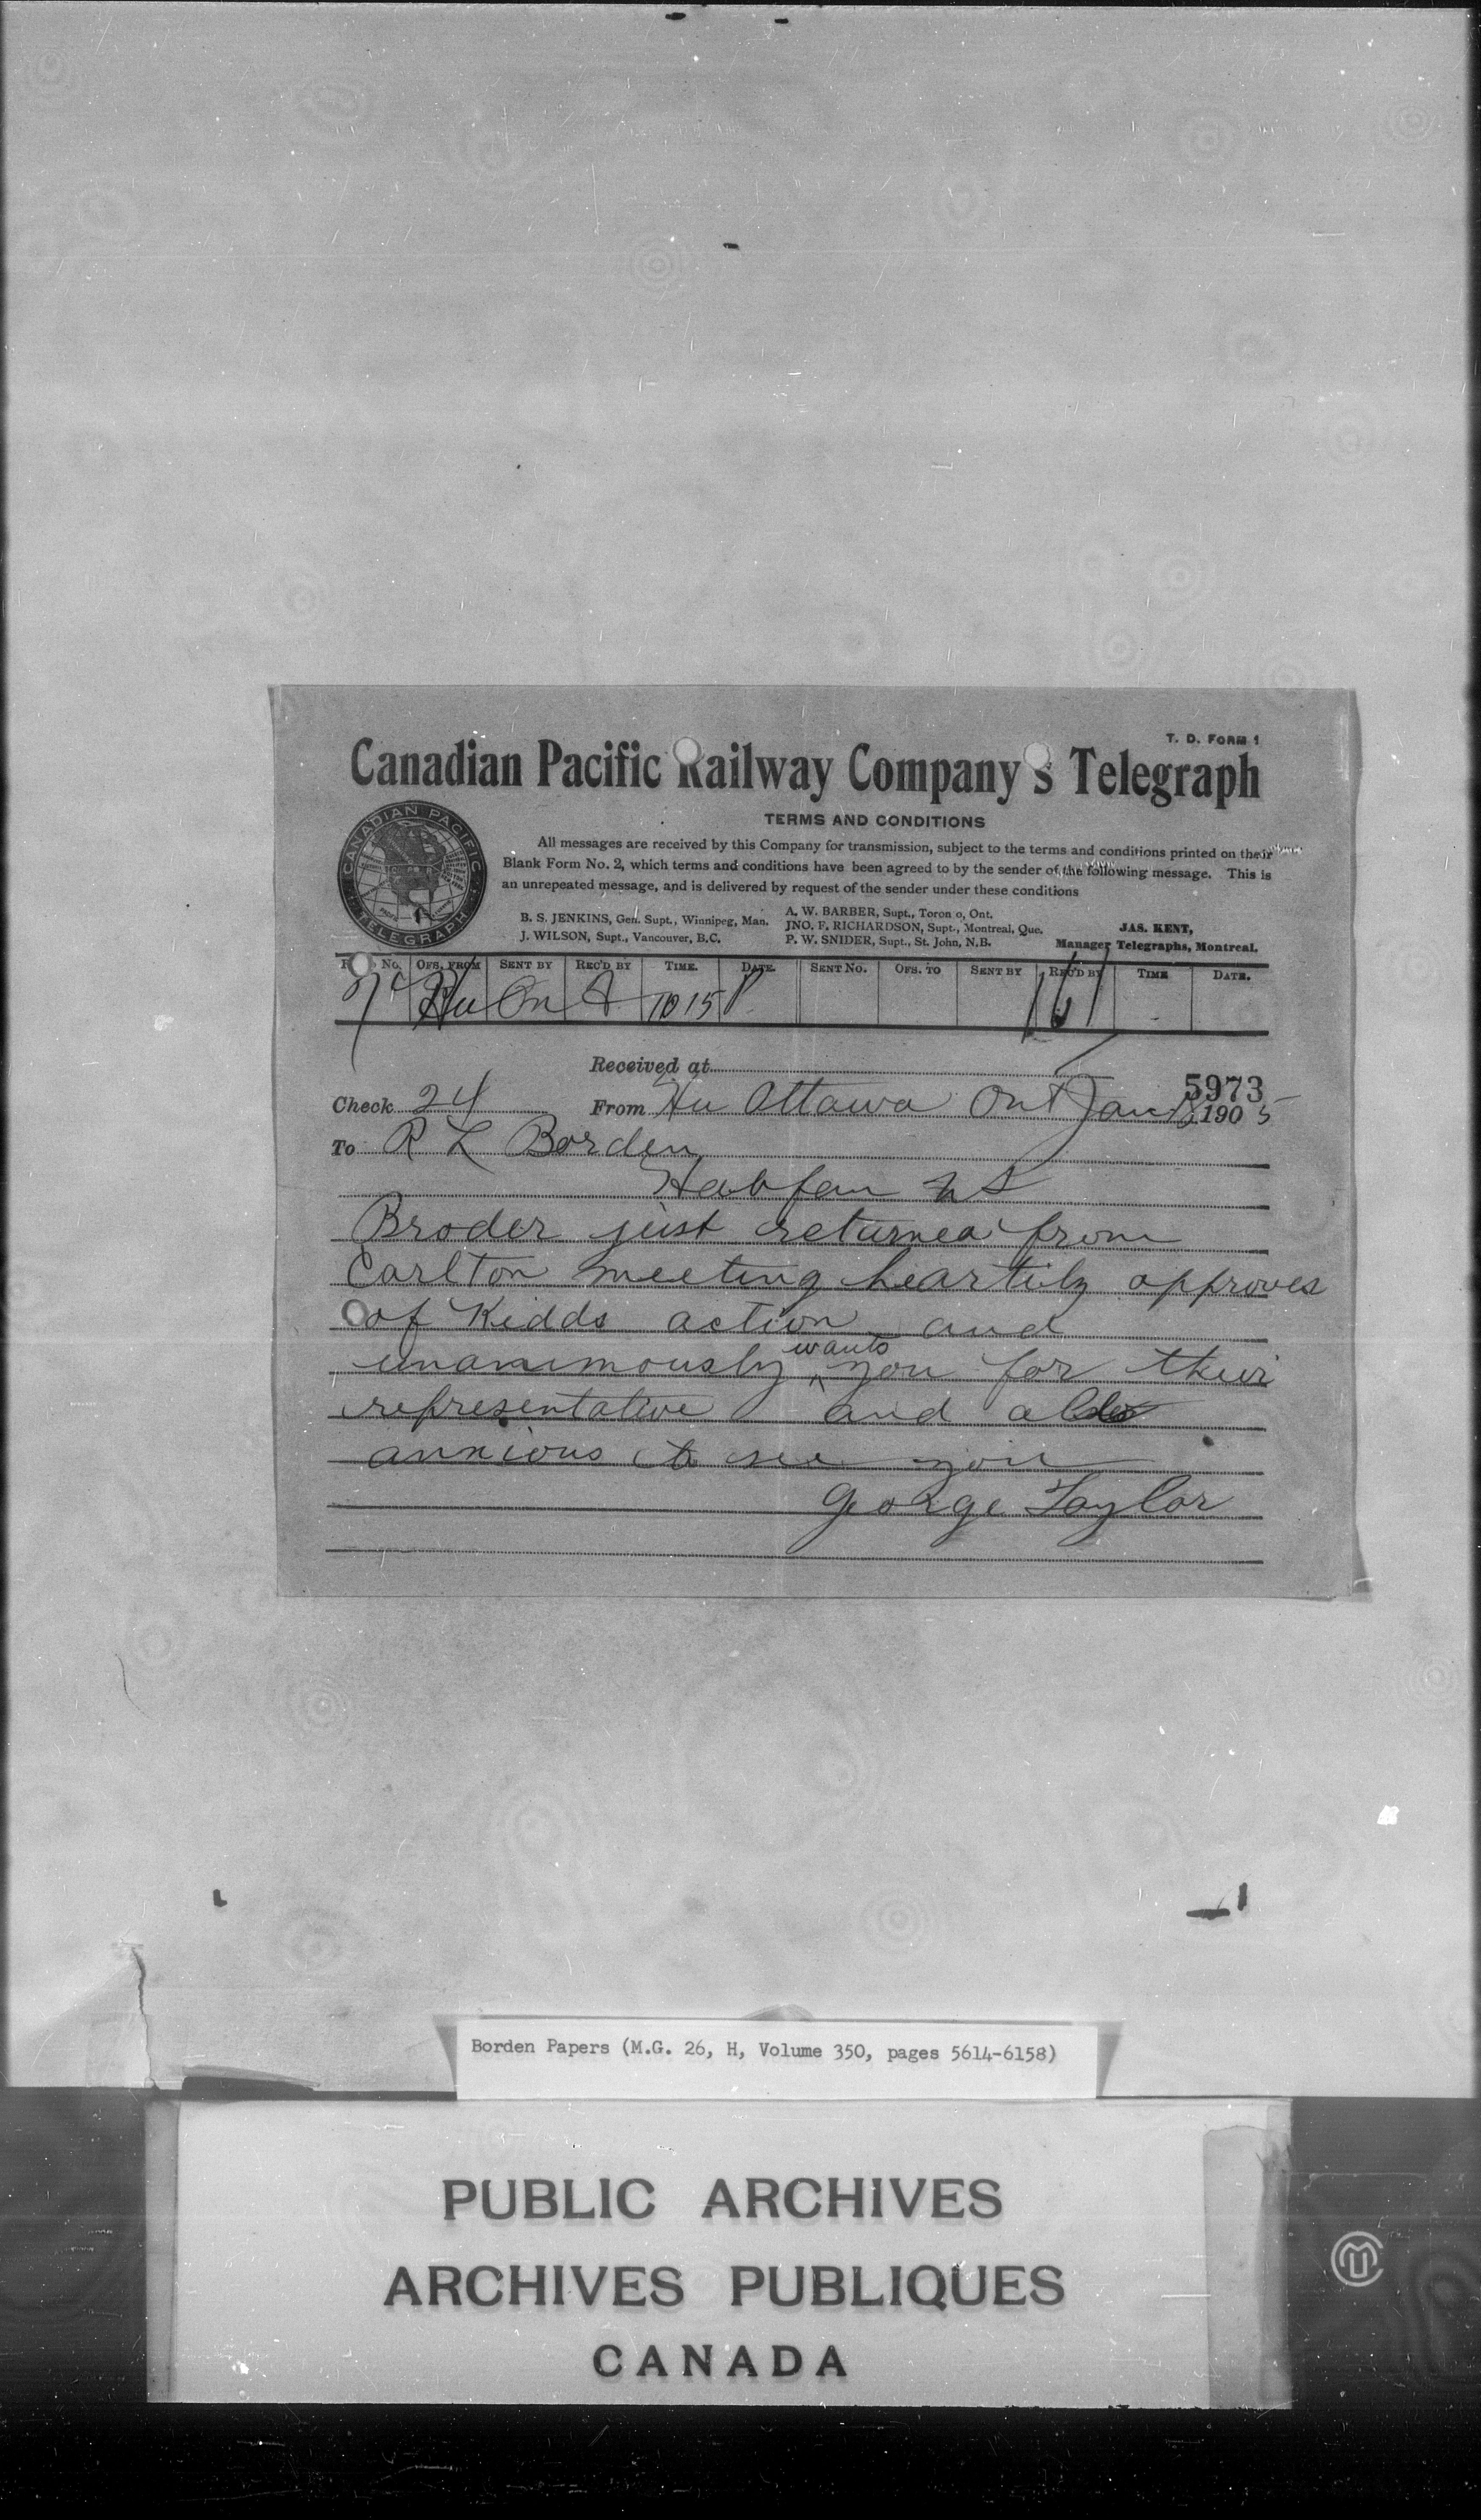 T. D. FORM 1
Canadian Pacific Railway Company's Telegraph
CANADIAN PACIFIC
TELEGRAPH
TERMS AND CONDITIONS
All messages are received by this Company for transmission, subject to the terms and conditions printed on their
Blank Form No. 2, which terms and conditions have been agreed to by the sender of the following message. This is
an unrepeated message, and is delivered by request of the sender under these conditions
B. S. JENKINS, Gen. Supt., Winnipeg, Man.
J. WILSON, Supt., Vancouver, B.C.
A. W. BARBER, Supt., Toron o, Ont.
JNO. F. RICHARDSON, Supt., Montreal, Que.
P. W. SNIDER, Supt., St. John, N.B.
JAS. KENT,
Manager Telegraphs, Montreal.
No. OFS. FROM SENT BY REC'D BY TIME. DATE. SENT No. OFS. TO SENT BY REC'D BY TIME DATE.
Hu On A 10 15 P
Received at
5973
Check 24 From Hu Ottawa Ont Jan 1905
To R L Borden
Halifax NS
Broder just returned from
Carlton meeting heartily approves
of Kidds action and
unanimously wants you for their
representative and also
anxious to see you
George Taylor
Borden Papers (M.G. 26, H, Volume 350, pages 5614-6158)
PUBLIC ARCHIVES
ARCHIVES PUBLIQUES
CANADA